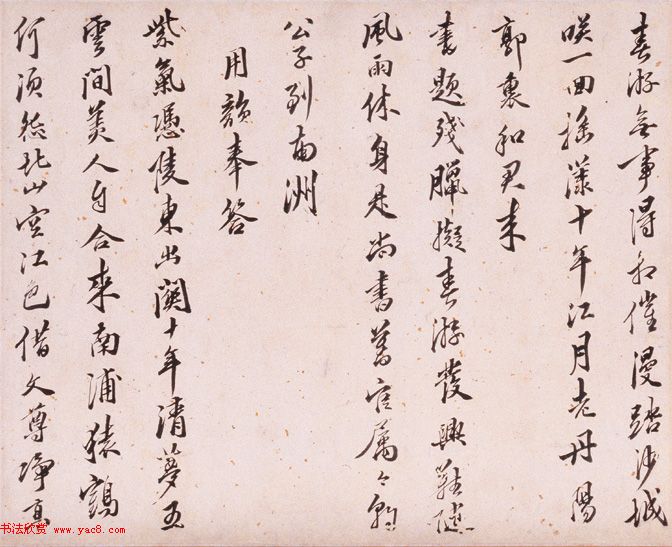 春游無事得相催漫踏沙城
咲一回搖蕩十年江月老丹陽
郭裏和君來
書題殘臘擬春游發興難隨
風雨休身是尚書舊官屬
公子到南洲
用韻奉答
紫氣憑陵東出關十年清夢五
雲間美人自合來南浦猿鶴
何須怨北山空江色借文尊淨
书法欣赏 www.yac8.com